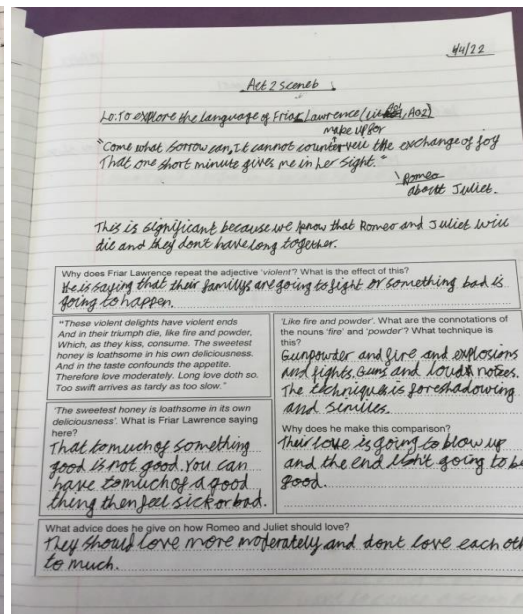 4/4/22
Act 2 scene 6
Lo: To explore the language of Friar Lawrence (Lit AO2)
make up for
"Come what sorrow can, It cannot countervail the exchange of joy
That one short minute gives me in her sight."
Romeo
about Juliet.
This is significant because we know that Romeo and Juliet will
die and they don't have long together.
Why does Friar Lawrence repeat the adjective 'violent'? What is the effect of this?
He is saying that their familys are going to fight or something bad is
going to happen.
"These violent delights have violent ends
And in their triumph die, like fire and powder,
Which, as they kiss, consume. The sweetest
honey is loathsome in his own deliciousness.
And in the taste confounds the appetite.
Therefore love moderately. Long love doth so.
Too swift arrives as tardy as too slow."
'The sweetest honey is loathsome in its own
deliciousness'. What is Friar Lawrence saying
here?
That to much of something
good is not good. You can
have to much of a good
thing then feel sick or bad.
'Like fire and powder'. What are the connotations of
the nouns 'fire' and 'powder'? What technique is
this?
Gunpowder and fire and explosions
and fights, Guns and loud notces.
The techniques is foreshadowing
and similies.
Why does he make this comparison?
Their love is going to blow up
and the end isn't going to be
good.
What advice does he give on how Romeo and Juliet should love?
They should love more moderately and dont love each oth
to much.